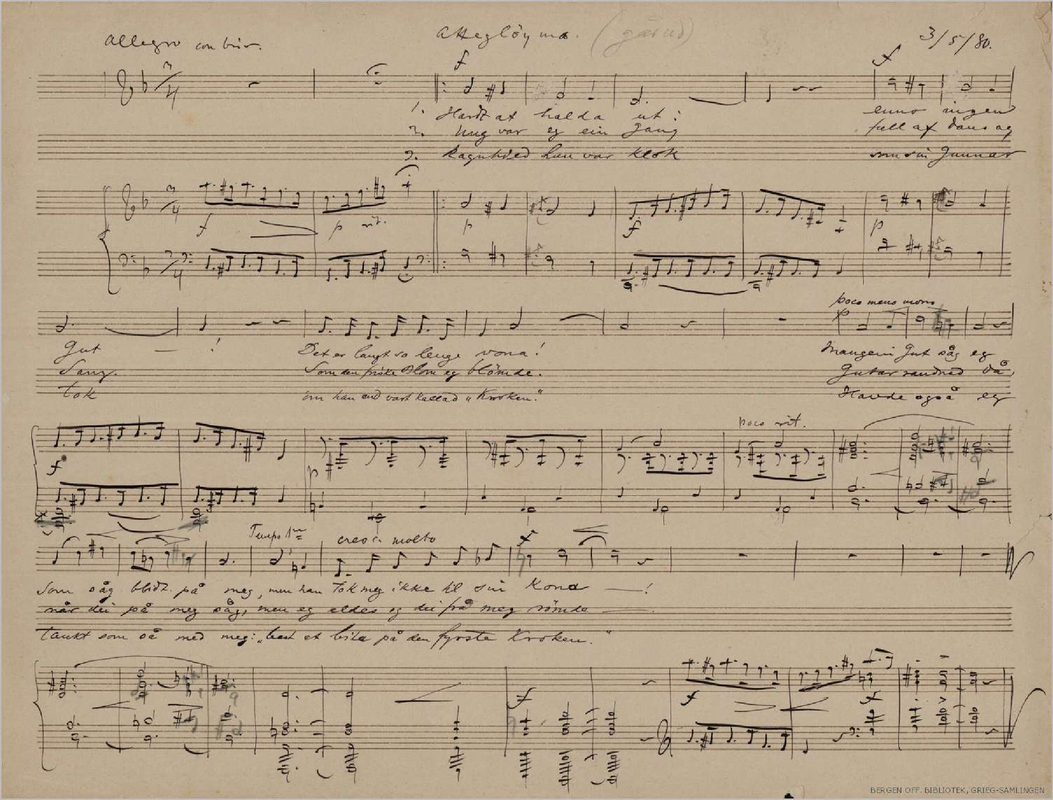 Allegro con brio. Attegløyma. 3/5/80.
f f
1. Hardt at halda ut: enno ingen
2. Ung var eg ein Gang full af Dans og
3. Ragnhild han var klok som sin Gunnar
f p rit. p f p
poco meno mosso
Gut — ! Det er langt so lenge vona! Mangein Gut såg eg
Sang. Som den friske Blom eg blømde. Gutar då,
tok om han end vart kallad „Kroken." Havde også eg
f p poco rit.
Tempo 1mo cresc. molto f
Som såg blidt på meg, men han tok meg ikke til sin Kona — !
når dei på meg såg, men eg eldes og dei frå meg rømde —.
tænkt som så med meg: „best at bita på den fyrste Kroken."
f f f
BERGEN OFF. BIBLIOTEK, GRIEG-SAMLINGEN